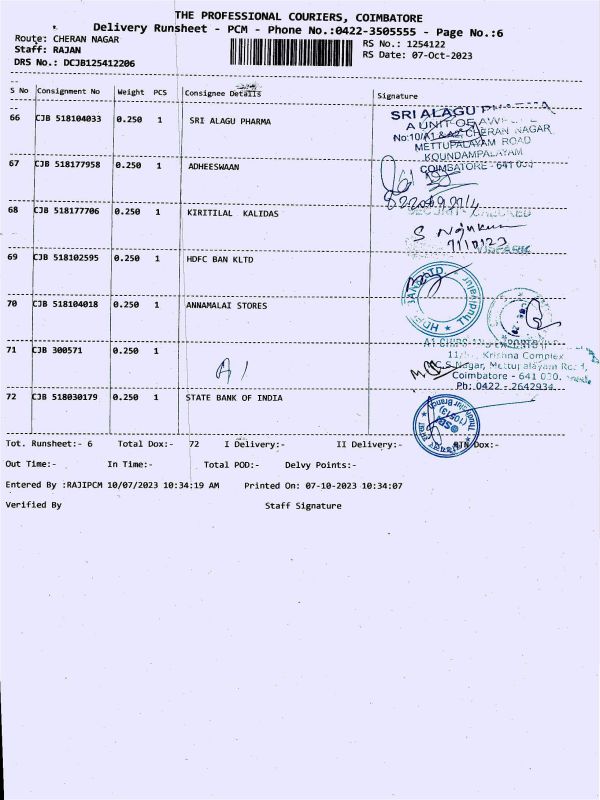 THE PROFESSIONAL COURIERS, COIMBATORE
Delivery Runsheet - PCM - Phone No.:0422-3505555 - Page No.:6
Route: CHERAN NAGAR
RS No.: 1254122
Staff: RAJAN
RS Date: 07-Oct-2023
DRS No.: DCJB125412206
S No Consignment No Weight PCS Consignee Details Signature
66 CJB 518104033 0.250 1 SRI ALAGU PHARMA
SRI ALAGU
A UNIT OF
No:10/A1 & A2, CHERAN NAGAR
METTUPALAYAM ROAD
KOUNDAMPALAYAM
COIMBATORE - 641
67 CJB 518177958 0.250 1 ADHEESWAAN
68 CJB 518177706 0.250 1 KIRITILAL KALIDAS
SECURITY CHECKED
7/10/23
69 CJB 518102595 0.250 1 HDFC BAN KLTD
HDFC
Thudiyalur
70 CJB 518104018 0.250 1 ANNAMALAI STORES
71 CJB 300571 0.250 1
A1
A1 CHIPS
Krishna Complex
Nagar, Mettupalayam Road,
Coimbatore - 641 030.
Ph: 0422 - 2642934
72 CJB 518030179 0.250 1 STATE BANK OF INDIA
Tot. Runsheet:- 6 Total Dox:- 72 I Delivery:- II Delivery:- Dox:-
Out Time:- In Time:- Total POD:- Delvy Points:-
Entered By :RAJIPCM 10/07/2023 10:34:19 AM Printed On: 07-10-2023 10:34:07
Verified By Staff Signature